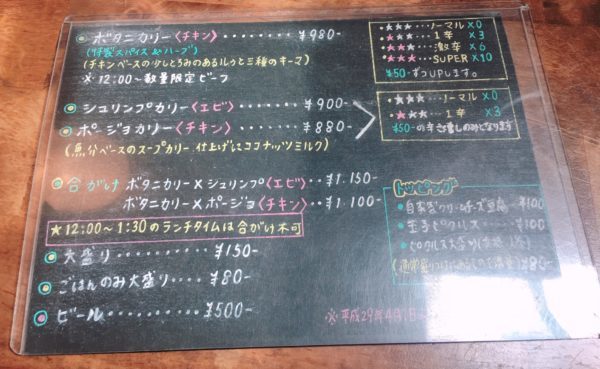 ボタニカリー〈チキン〉‥‥‥‥¥980-
(特製スパイス&ハーブ)
(チキンベースの少しとろみのあるルゥと三種のキーマ)
※12:00～数量限定
シュリンプカリー〈エビ〉‥‥‥¥900-
ポージョカリー〈チキン〉‥‥‥¥880-
(魚介ベースのスープカリー 仕上げにココナッツミルク)
合がけ ボタニカリー×シュリンプ〈エビ〉‥¥1.150-
ボタニカリー×ポージョ〈チキン〉‥¥1.100-
★12:00～1:30のランチタイムは合がけ不可
大盛り‥‥¥150-
ごはんのみ大盛り‥‥¥80-
ビール‥‥‥‥‥¥500-
★★★‥‥ノーマル×0
★★★‥‥1辛×3
★★★‥‥激辛×6
★★★‥‥SUPER×10
¥50-ずつUPします。
★★★‥‥ノーマル×0
★★★‥‥1辛×3
¥50-の辛さ増しのみとなります
トッピング
自家製クリームチーズ豆腐 ¥100
玉子ピクルス‥‥ ¥100
ピクルス大盛り
¥80-
※平成29年4月1日